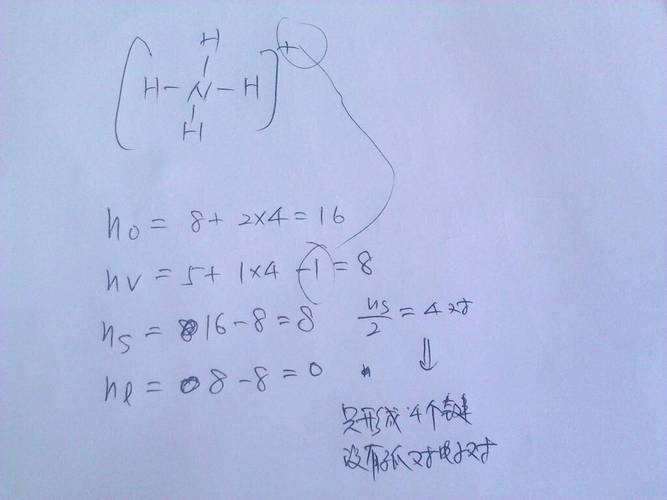 H
H - N - H
H
+
no = 8 + 2×4 = 16
nv = 5 + 1×4 - 1 = 8
ns = 16 - 8 = 8
ns/2 = 4对
nl = 8 - 8 = 0
⇓
只形成4个键
没有孤对电子对